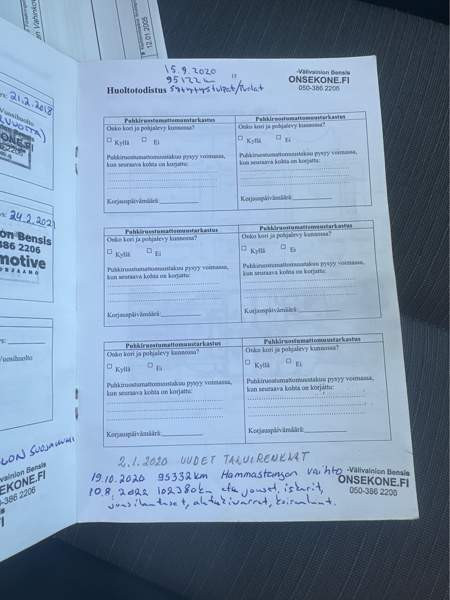 12.01.2005
21.2.2018
24.2.202
on Bensis
386 2206
motive
15.9.2020
95122 km
Sytytystulpat/Puolat
13
Huoltotodistus
-Välivainion Bensis
ONSEKONE.FI
050-386 2206
Puhkiruostumattomuustarkastus
Onko kori ja pohjalevy kunnossa?
Kyllä Ei
Puhkiruostumattomuustakuu pysyy voimassa,
kun seuraava kohta on korjattu:
Korjauspäivämäärä:
Puhkiruostumattomuustarkastus
Onko kori ja pohjalevy kunnossa?
Kyllä Ei
Puhkiruostumattomuustakuu pysyy voimassa,
kun seuraava kohta on korjattu:
Korjauspäivämäärä:
Puhkiruostumattomuustarkastus
Onko kori ja pohjalevy kunnossa?
Kyllä Ei
Puhkiruostumattomuustakuu pysyy voimassa,
kun seuraava kohta on korjattu:
Korjauspäivämäärä:
Puhkiruostumattomuustarkastus
Onko kori ja pohjalevy kunnossa?
Kyllä Ei
Puhkiruostumattomuustakuu pysyy voimassa,
kun seuraava kohta on korjattu:
Korjauspäivämäärä:
Puhkiruostumattomuustarkastus
Onko kori ja pohjalevy kunnossa?
Kyllä Ei
Puhkiruostumattomuustakuu pysyy voimassa,
kun seuraava kohta on korjattu:
Korjauspäivämäärä:
Puhkiruostumattomuustarkastus
Onko kori ja pohjalevy kunnossa?
Kyllä Ei
Puhkiruostumattomuustakuu pysyy voimassa,
kun seuraava kohta on korjattu:
Korjauspäivämäärä:
2.1.2020 UUDET TALVIRENKAAT
19.10.2020 95332km Hammastangon vaihto
10.8.2022 102380km etu jouset, iskarit,
jousilautaset, alatukivarret, koiranluut.
-Välivainion Bensis
ONSEKONE.FI
050-386 2206
-Välivainion Bensis
SEKONE.FI
050-386 2206